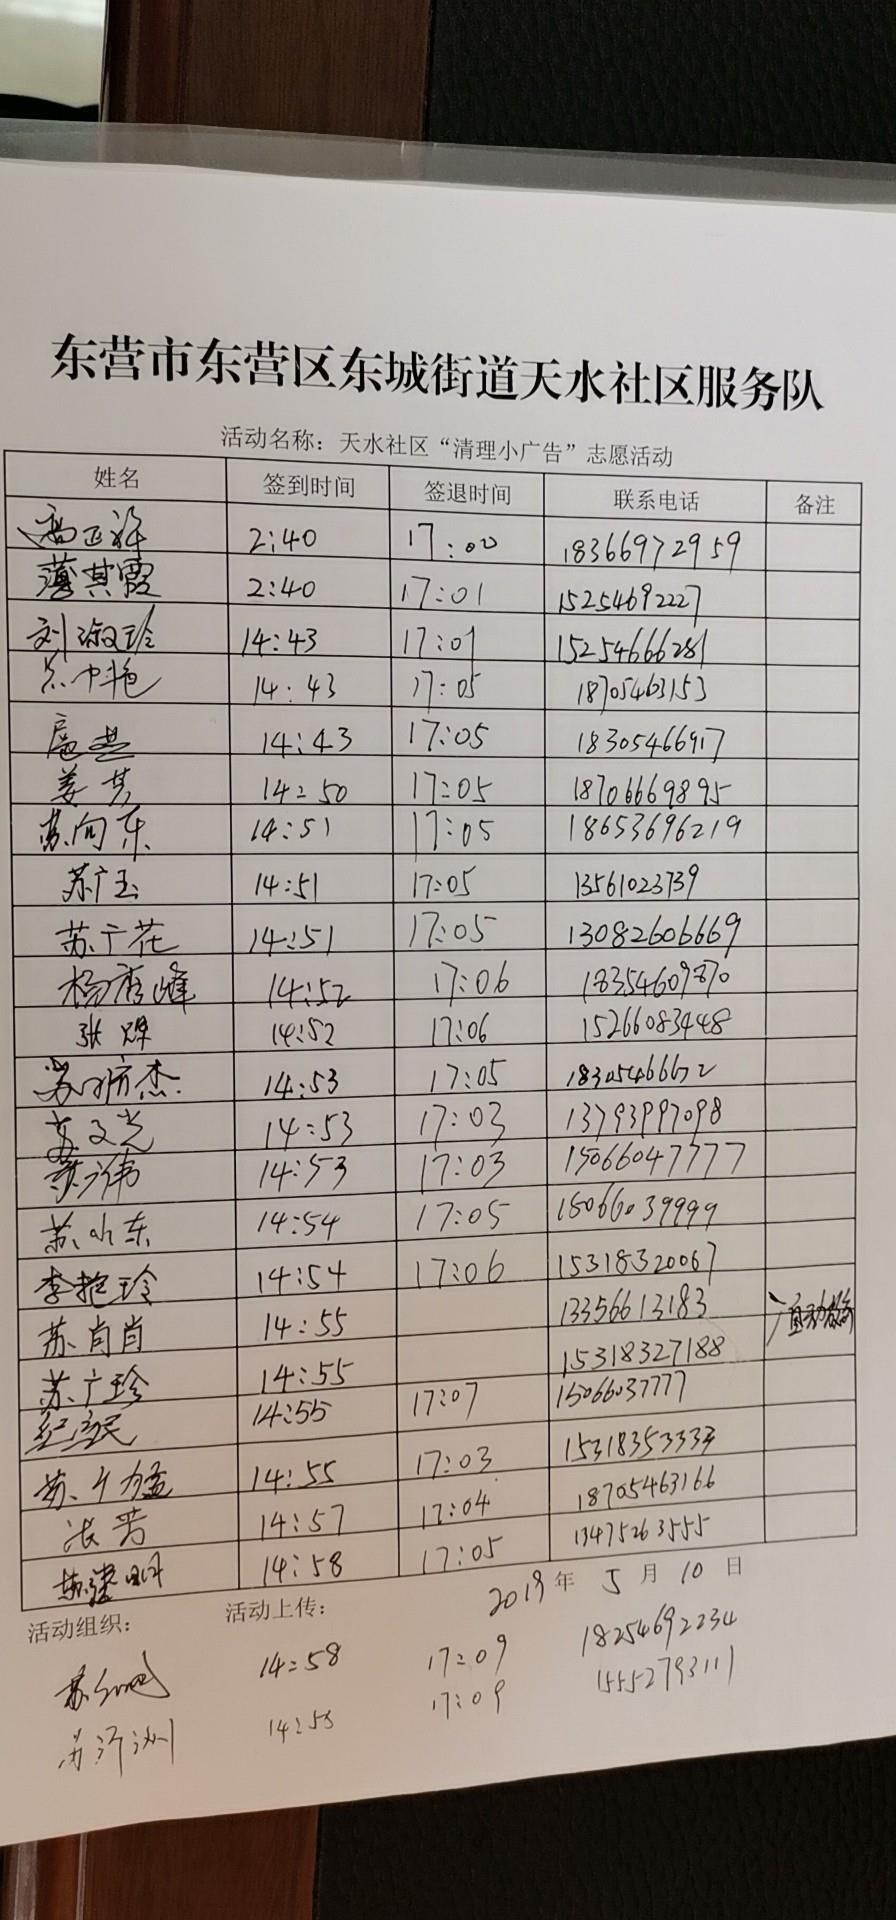 东营市东营区东城街道天水社区服务队
活动名称：天水社区“清理小广告”志愿活动
姓名 签到时间 签退时间 联系电话 备注
2:40 17:00 18366972959
薄其霞 2:40 17:01 15254692227
刘淑玲 14:43 17:01 15254666281
14:43 17:05 18705463153
14:43 17:05 18305466917
姜其 14:50 17:05 18706669895
苏向东 14:51 17:05 18653696219
苏广玉 14:51 17:05 13561023739
苏广花 14:51 17:05 13082606669
杨秀峰 14:52 17:06 18354609870
张 14:52 17:06 15266083448
杰 14:53 17:05
苏文光 14:53 17:03 13793997098
伟 14:53 17:03 15066047777
苏水东 14:54 17:05 15066039999
李艳玲 14:54 17:06 15318320067
苏肖肖 14:55 13356613183
苏广珍 14:55 15318327188
纪 民 14:55 17:07 15066037777
苏 14:55 17:03 15318353333
张芳 14:57 17:04 18705463166
苏建明 14:58 17:05 13475263555
2019年 5月 10日
活动组织： 活动上传：
苏 14:58 17:09 18254692234
苏 洲 17:09 15552793111